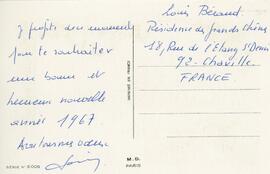 J profite des moments
pour te souhaiter
une bonne et
heureuse nouvelle
année 1967
SÉRIE N° S.006
M. D.
PARIS
Louis Béraud
Résidence des grands chênes
18, Rue de l'Etang St Denis
92 - Chaville
FRANCE